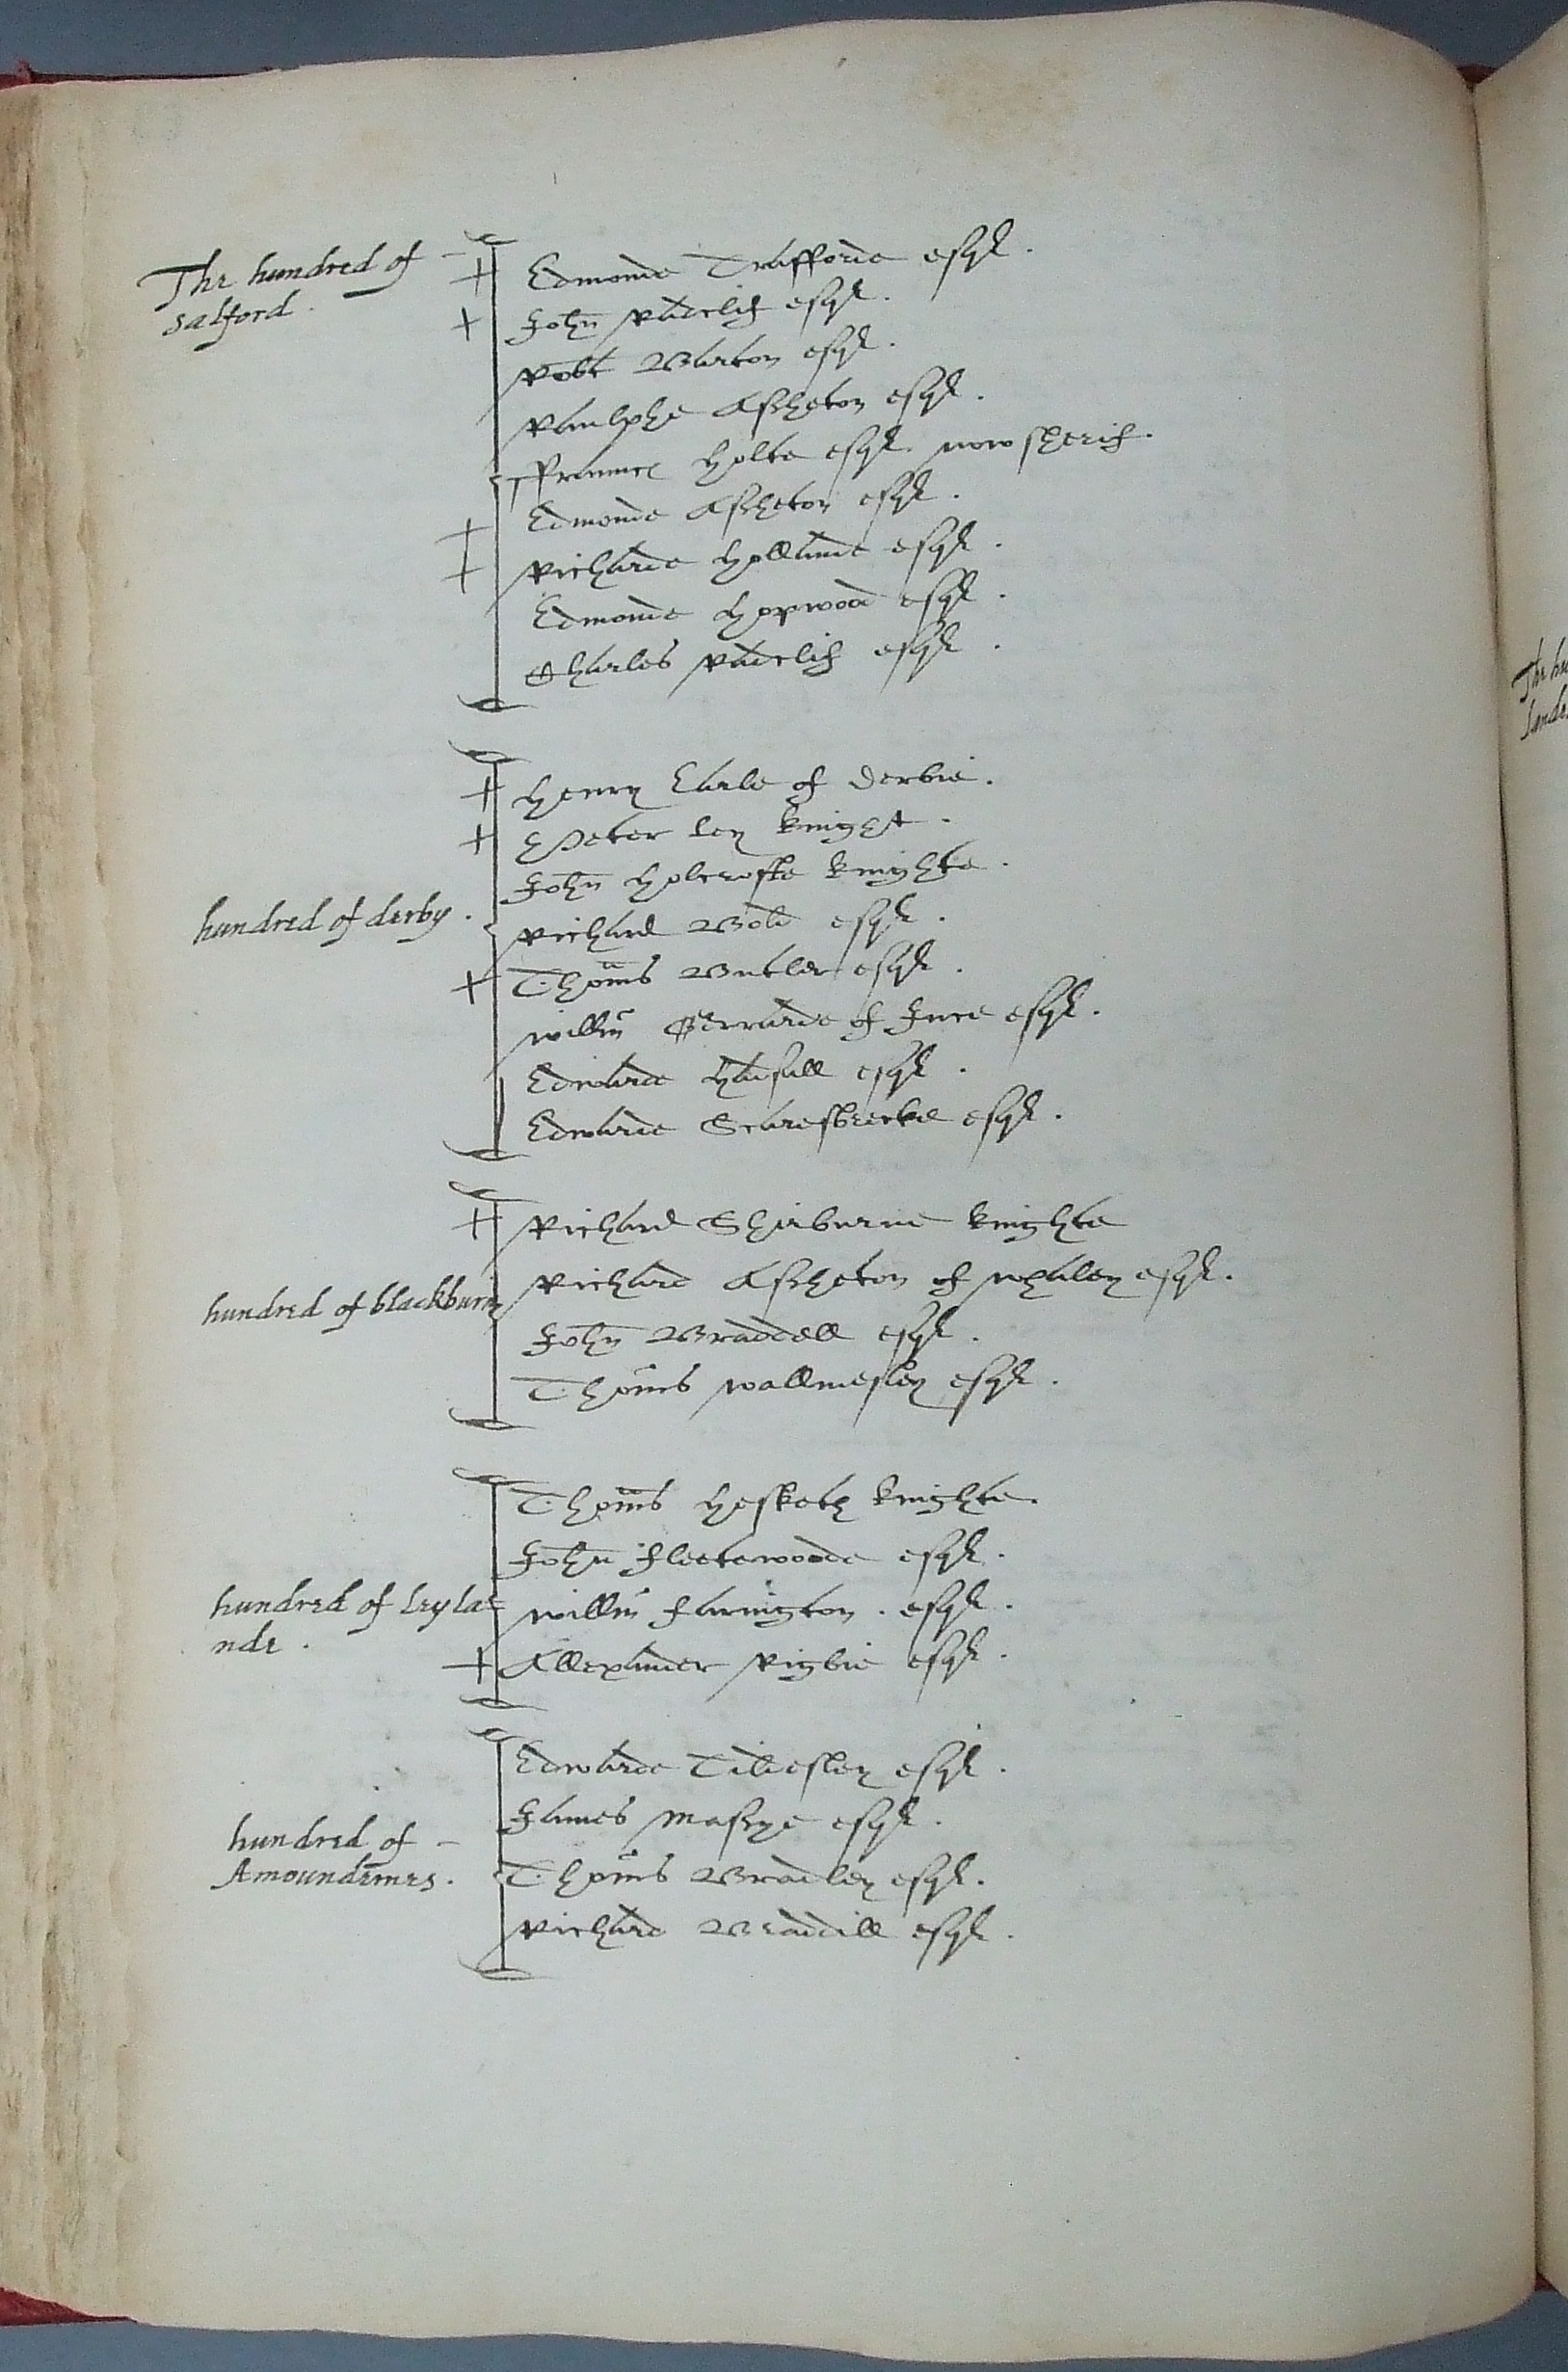 The hundred of
salford.
+ Edmonde Trafforde esqr.
+ John Radclif esqr.
Robt Barton esqr.
Raulphe Assheton esqr.
Frauncs Holte esqr. now sherif.
+ Edmonde Assheton esqr.
+ Richarde Hollande esqr.
Edmonde Hopwood esqr.
Charles Radclif esqr.
hundred of derby.
+ Henry Earle of Derbie.
+ Peter Ley knight.
John Holcrofte knighte.
Richard Bold esqr.
+ Thoms Butler esqr.
Willm Gerrarde of Ince esqr.
Edwarde Halsall esqr.
Edwarde Scaresbrecke esqr.
hundred of blackburn
+ Richard Shirburne knighte
Richard Assheton of Whaley esqr.
John Braddell esqr.
Thoms Wallmesley esqr.
hundred of Leyla=
nde.
Thoms Hesketh knighte.
John Fleetewoode esqr.
Willm Farington. esqr.
+ Allexander Rigbie esqr.
hundred of –
Amoundernes.
Edwarde Tildesley esqr.
James Massye esqr.
Thoms Bradley esqr.
Richard Braddill esqr.
The hu